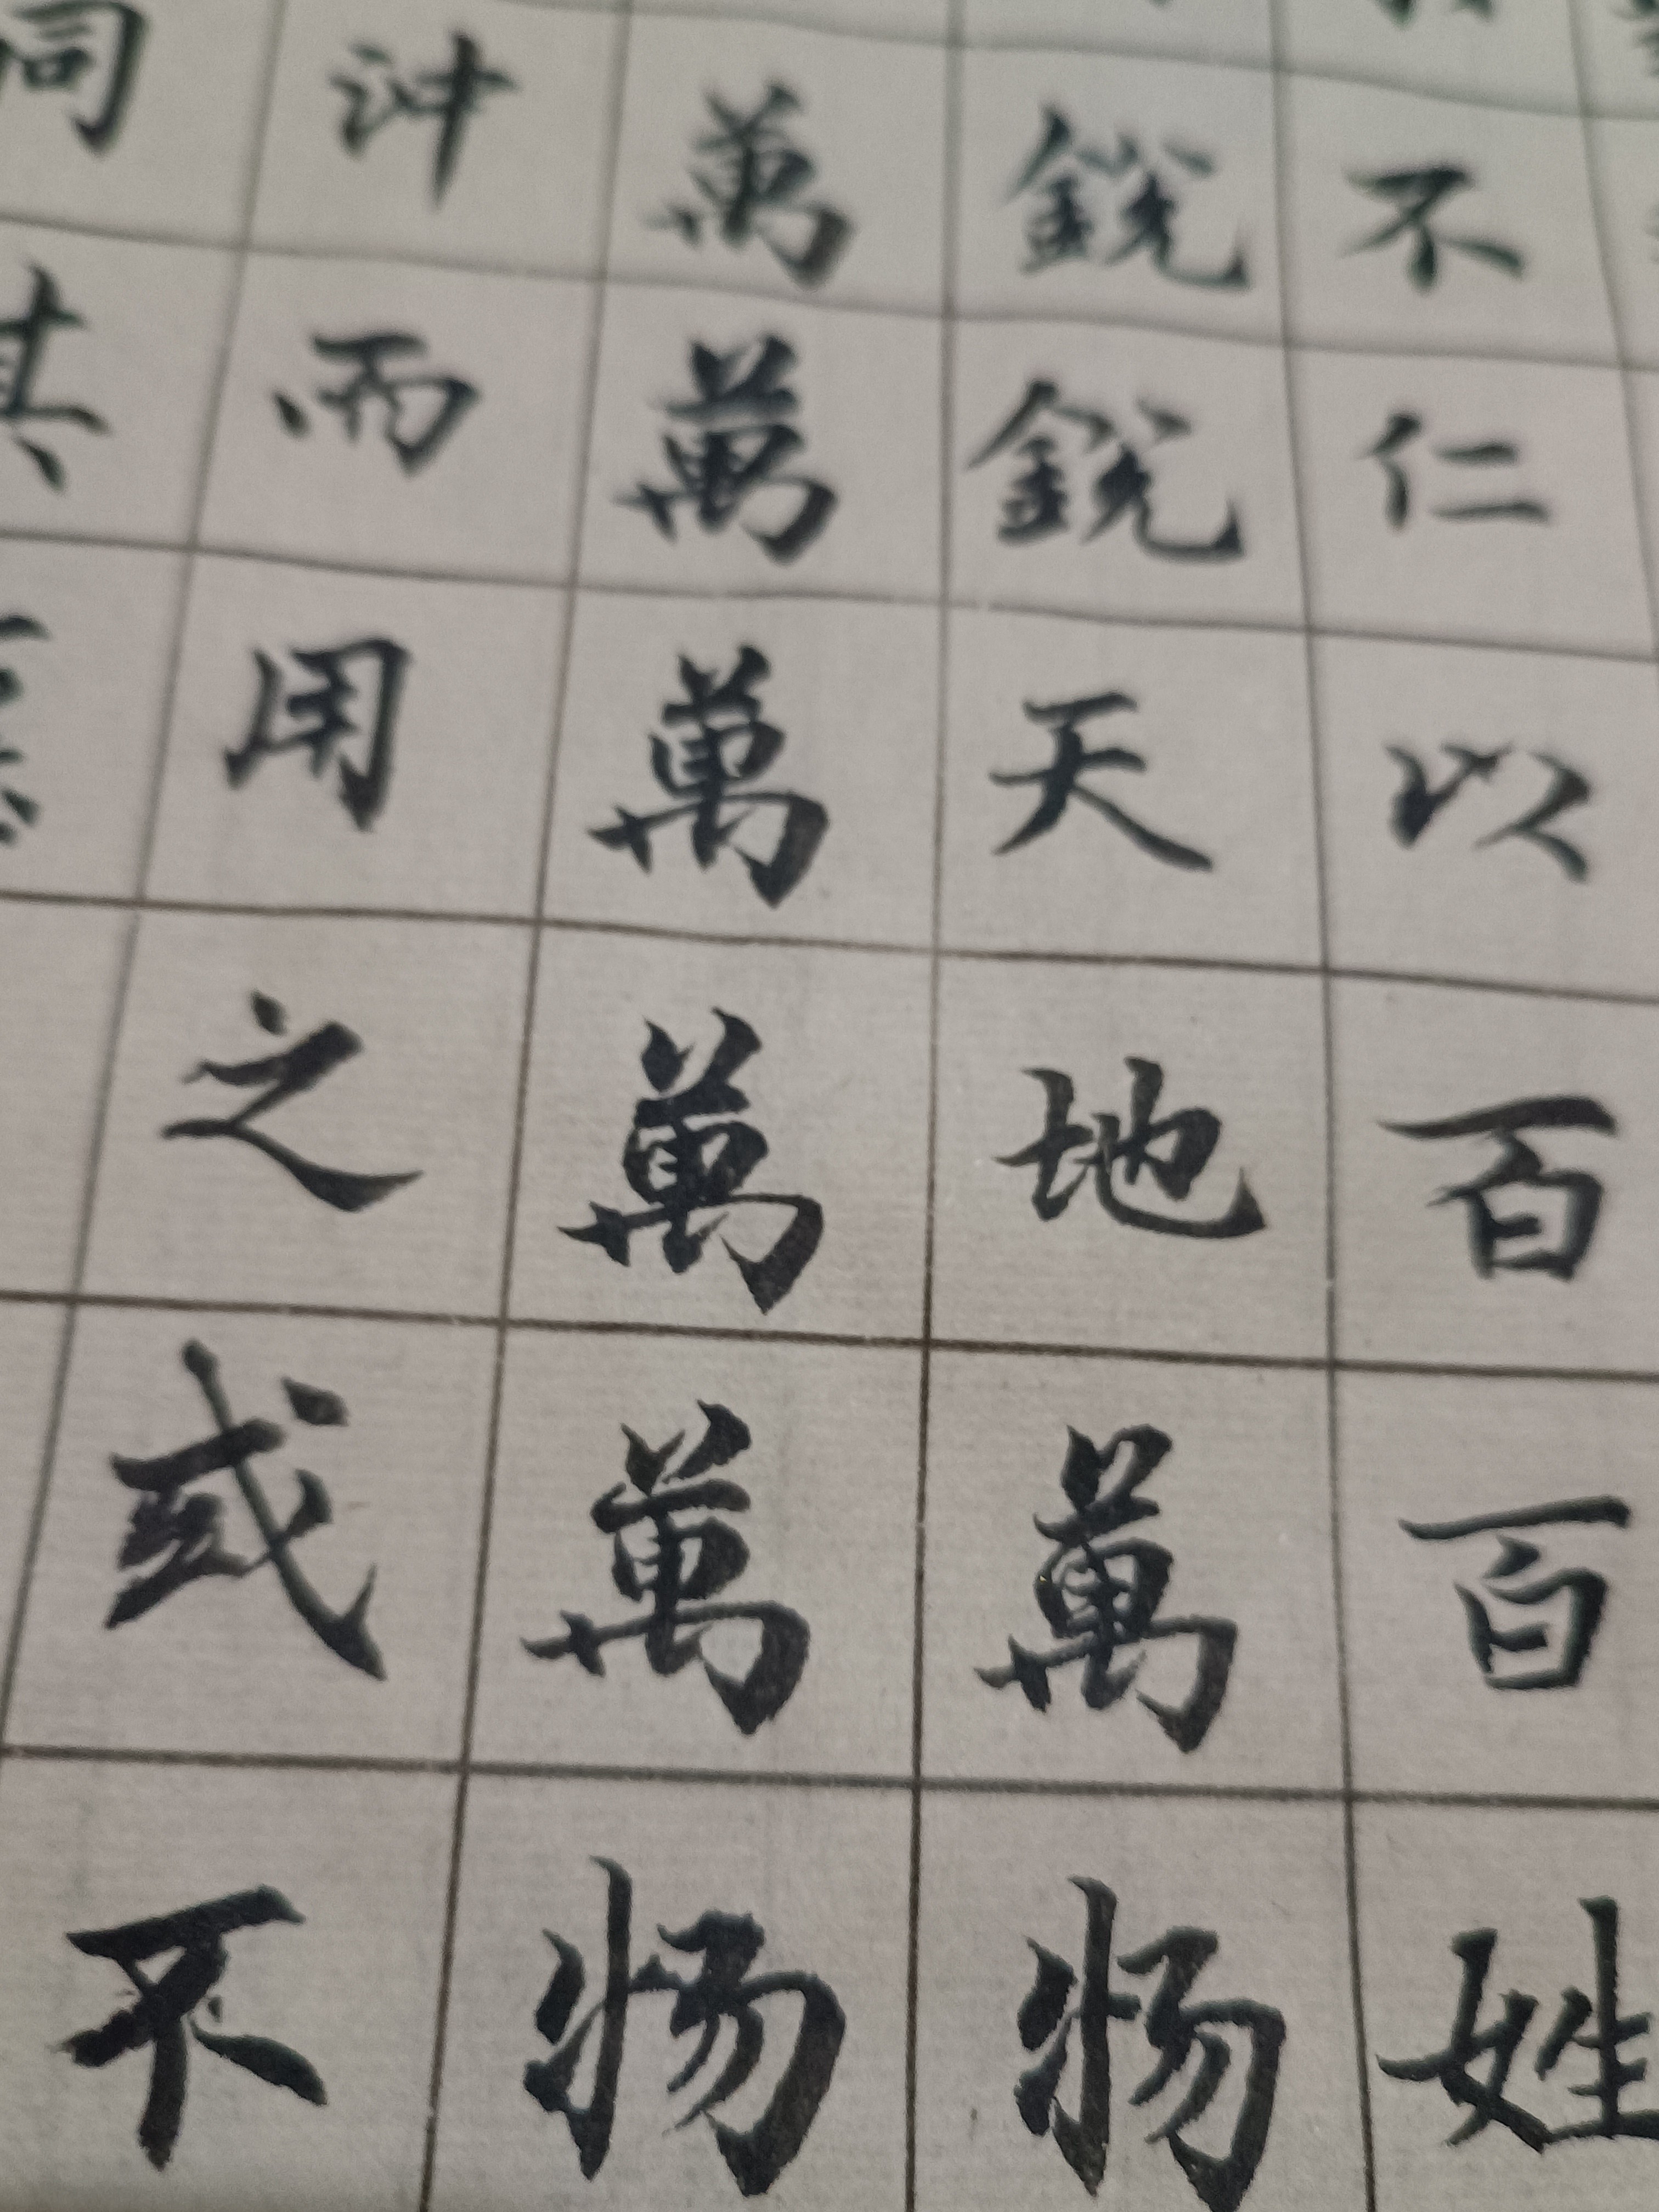 不仁以百百姓
銳銳天地萬物
萬萬萬萬萬物
沖而用之或不
同其